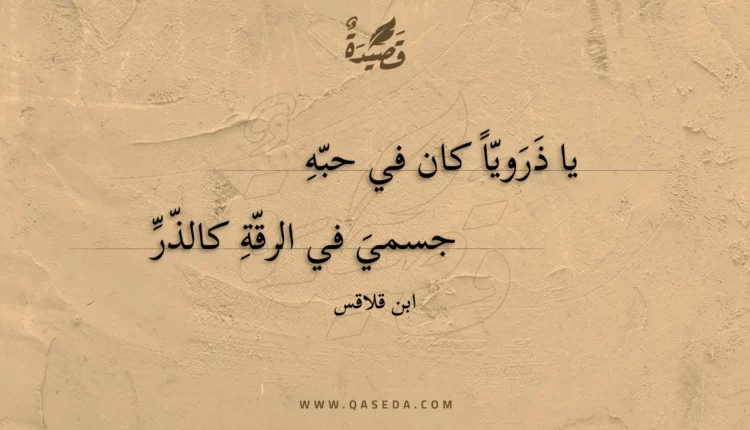 قَصِيْدَةٌ
يا ذَرَويّاً كان في حبّهِ
جسميَ في الرقّةِ كالذّرِّ
ابن قلاقس
WWW.QASEDA.COM